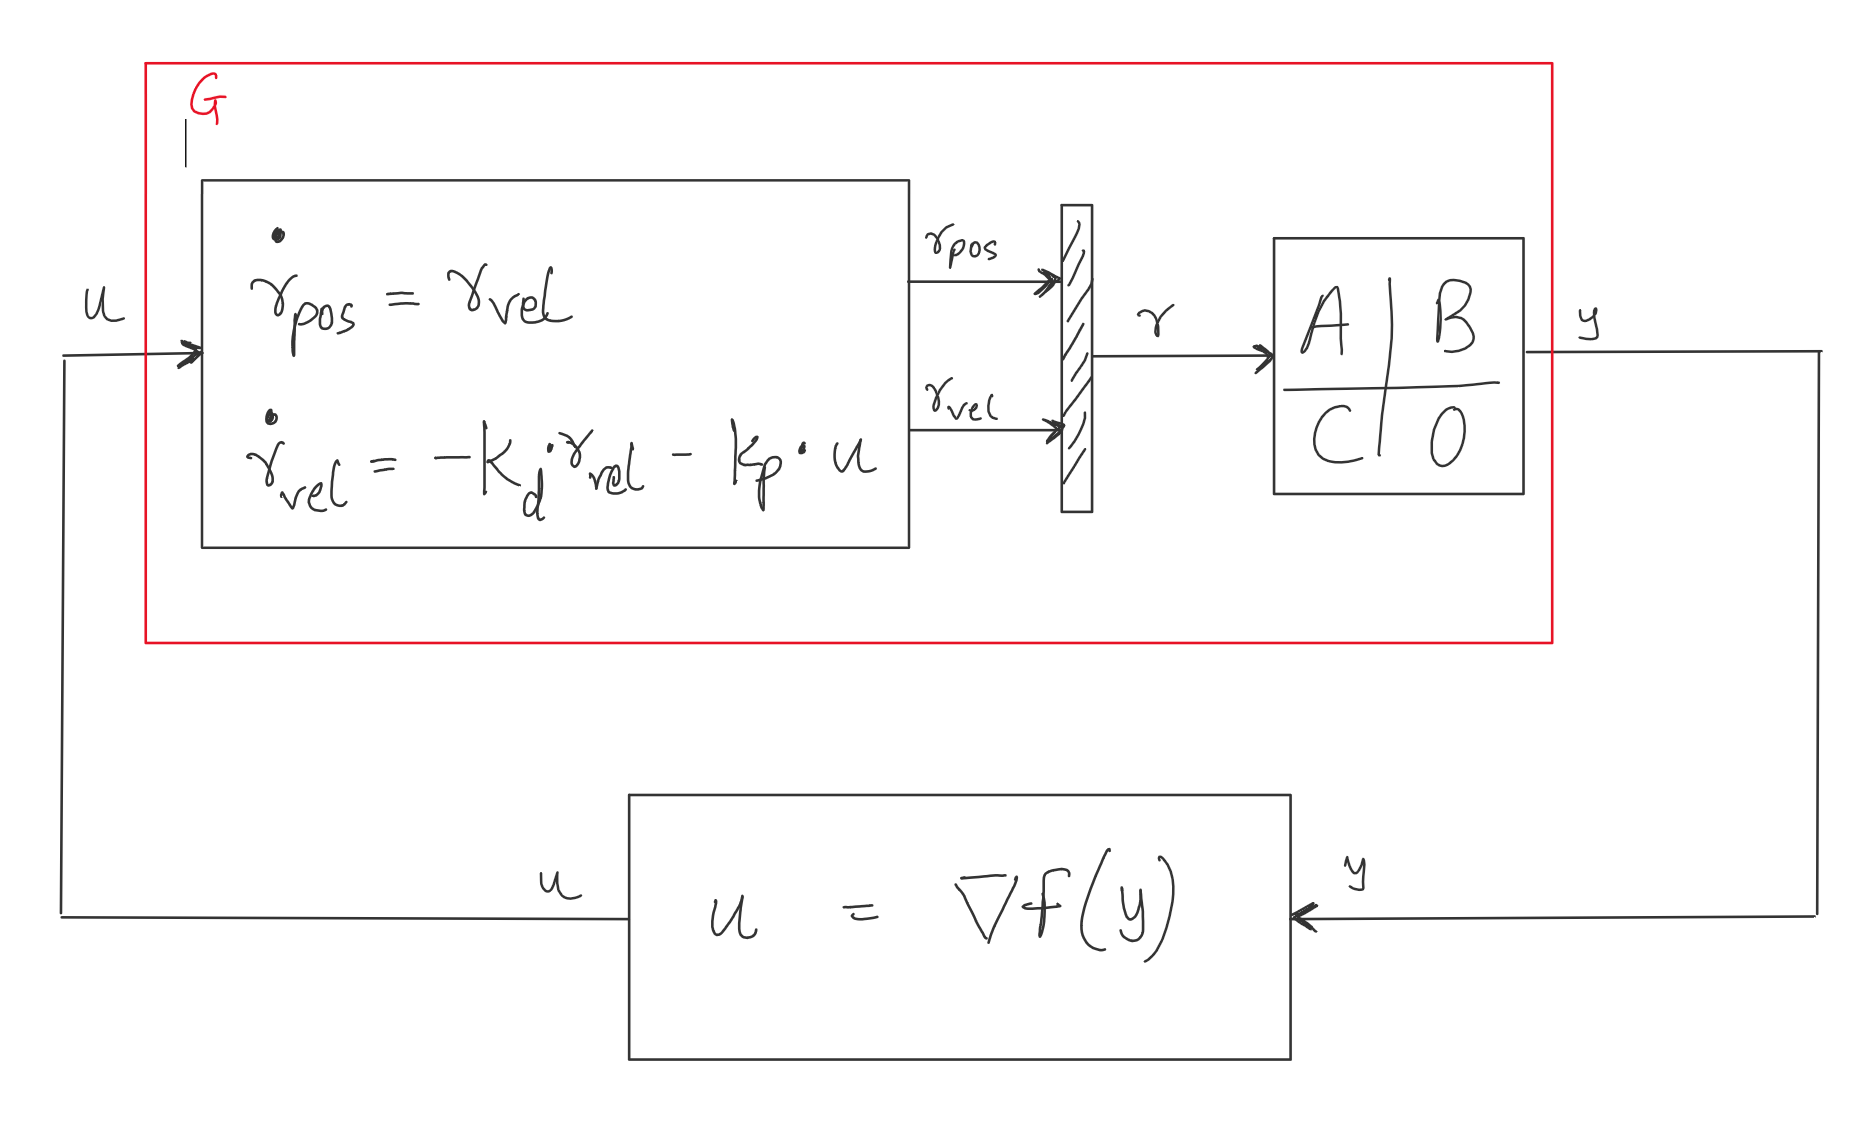 G
u
ṙpos = rvel
ṙvel = -Kd·rvel - kp·u
rpos
rvel
r
A B
C 0
y
u
u = ∇f(y)
y